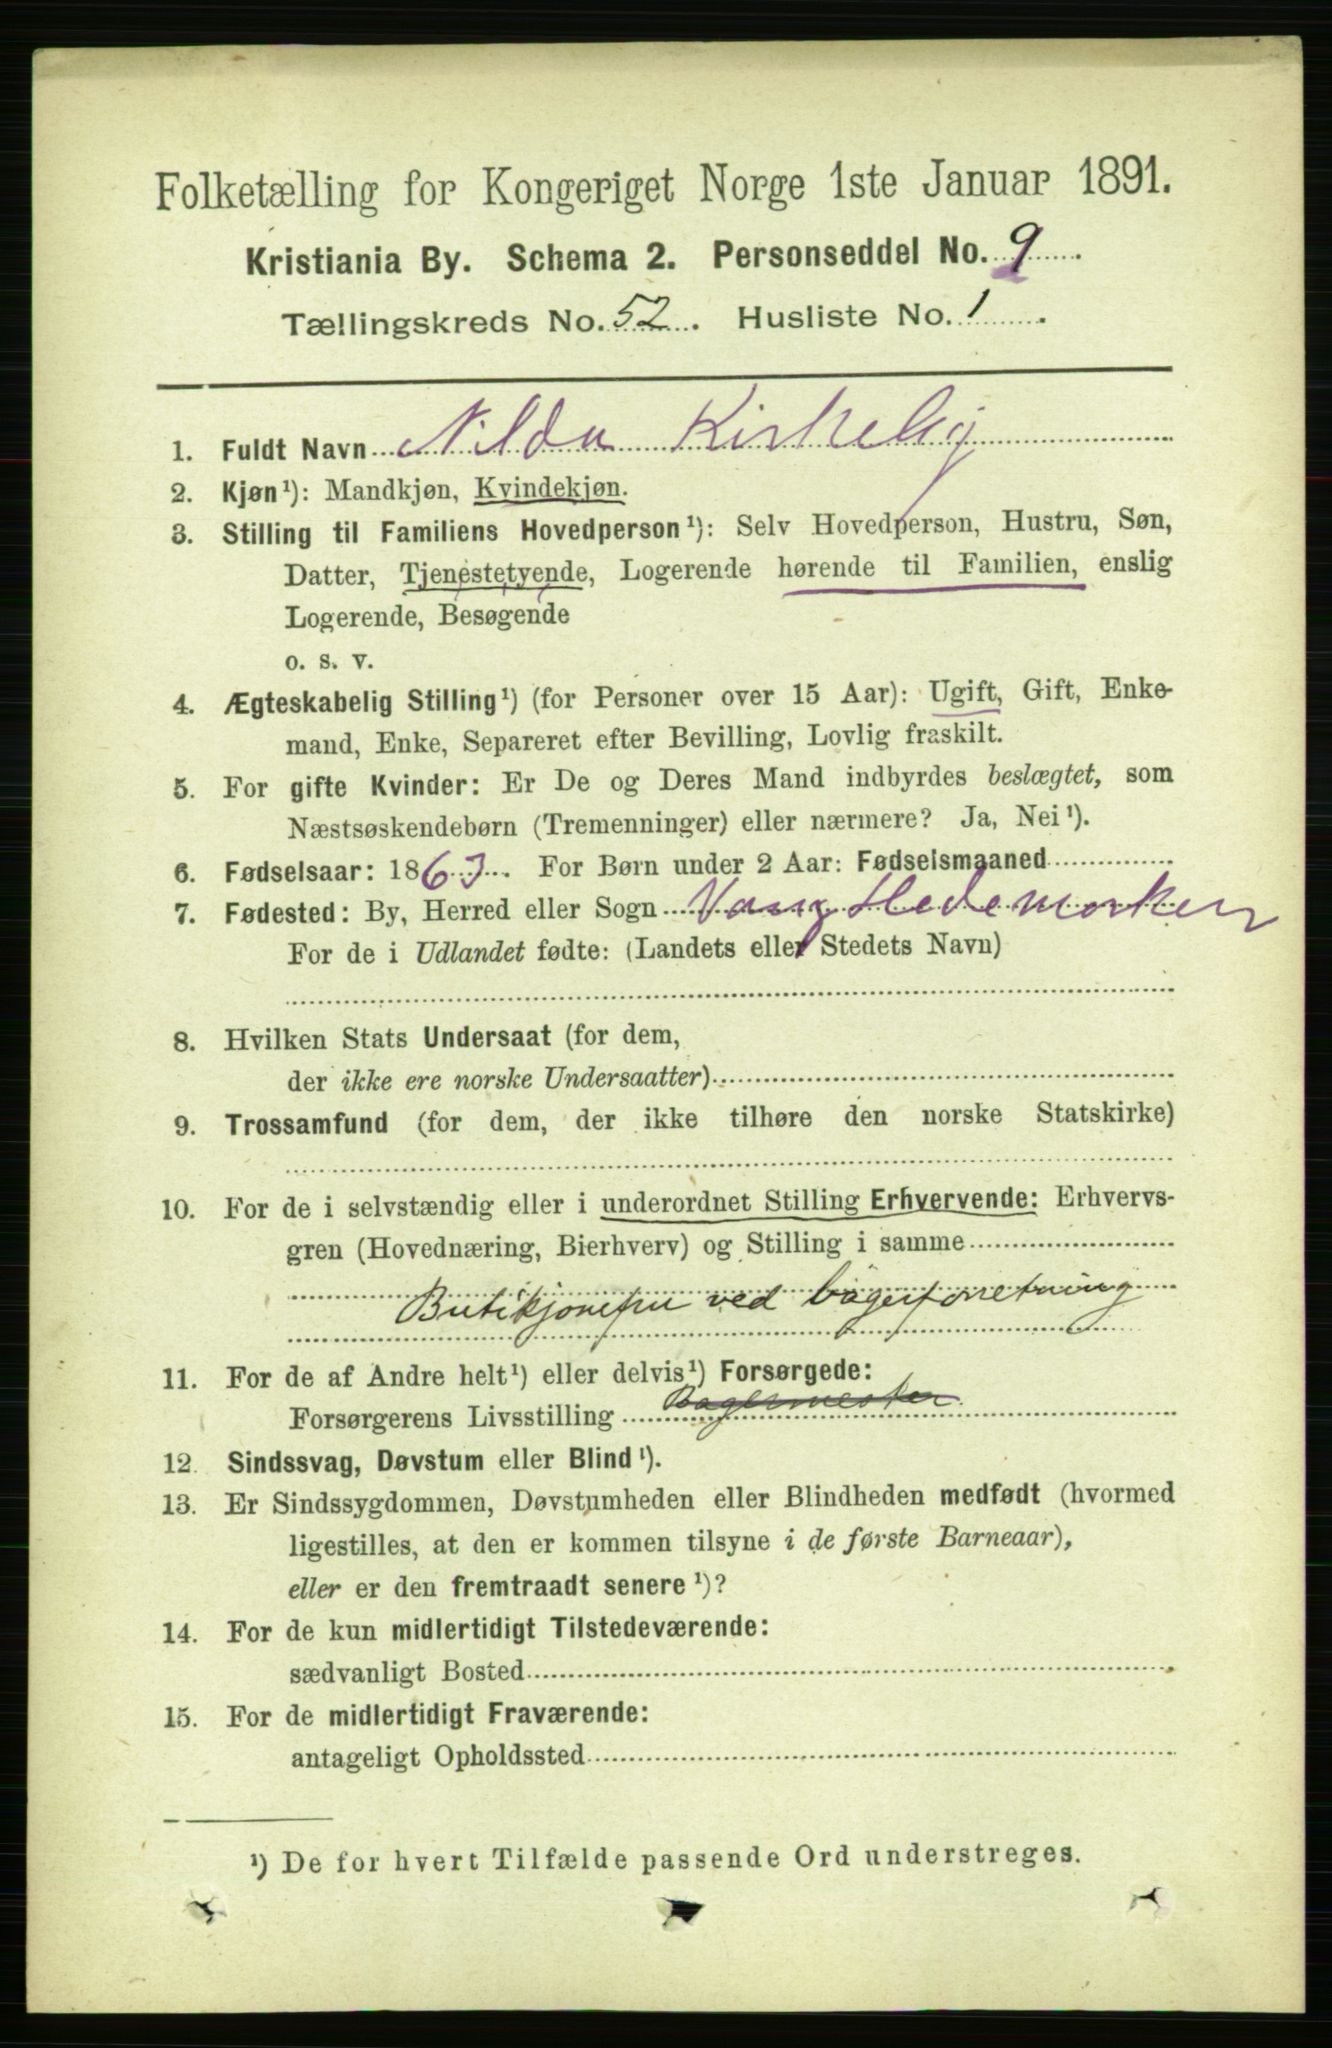 Folketælling for Kongeriget Norge 1ste Januar 1891.
Kristiania By. Schema 2. Personseddel No. 9
Tællingskreds No. 52. Husliste No. 1.
1. Fuldt Navn Nilda Kirkeby
2. Kjøn¹): Mandkjøn, Kvindekjøn.
3. Stilling til Familiens Hovedperson¹): Selv Hovedperson, Hustru, Søn,
Datter, Tjenestetyende, Logerende hørende til Familien, enslig
Logerende, Besøgende
o. s. v.
4. Ægteskabelig Stilling¹) (for Personer over 15 Aar): Ugift, Gift, Enke-
mand, Enke, Separeret efter Bevilling, Lovlig fraskilt.
5. For gifte Kvinder: Er De og Deres Mand indbyrdes beslægtet, som
Næstsøskendebørn (Tremenninger) eller nærmere? Ja, Nei¹).
6. Fødselsaar: 1863. For Børn under 2 Aar: Fødselsmaaned
7. Fødested: By, Herred eller Sogn Vang Hedemarken
For de i Udlandet fødte: (Landets eller Stedets Navn)
8. Hvilken Stats Undersaat (for dem,
der ikke ere norske Undersaatter)
9. Trossamfund (for dem, der ikke tilhøre den norske Statskirke)
10. For de i selvstændig eller i underordnet Stilling Erhvervende: Erhvervs-
gren (Hovednæring, Bierhverv) og Stilling i samme
Butikjomfru ved bagerforretning
11. For de af Andre helt¹) eller delvis¹) Forsørgede:
Forsørgerens Livsstilling Bagermester
12. Sindssvag, Døvstum eller Blind¹).
13. Er Sindssygdommen, Døvstumheden eller Blindheden medfødt (hvormed
ligestilles, at den er kommen tilsyne i de første Barneaar),
eller er den fremtraadt senere¹)?
14. For de kun midlertidigt Tilstedeværende:
sædvanligt Bosted
15. For de midlertidigt Fraværende:
antageligt Opholdssted
¹) De for hvert Tilfælde passende Ord understreges.